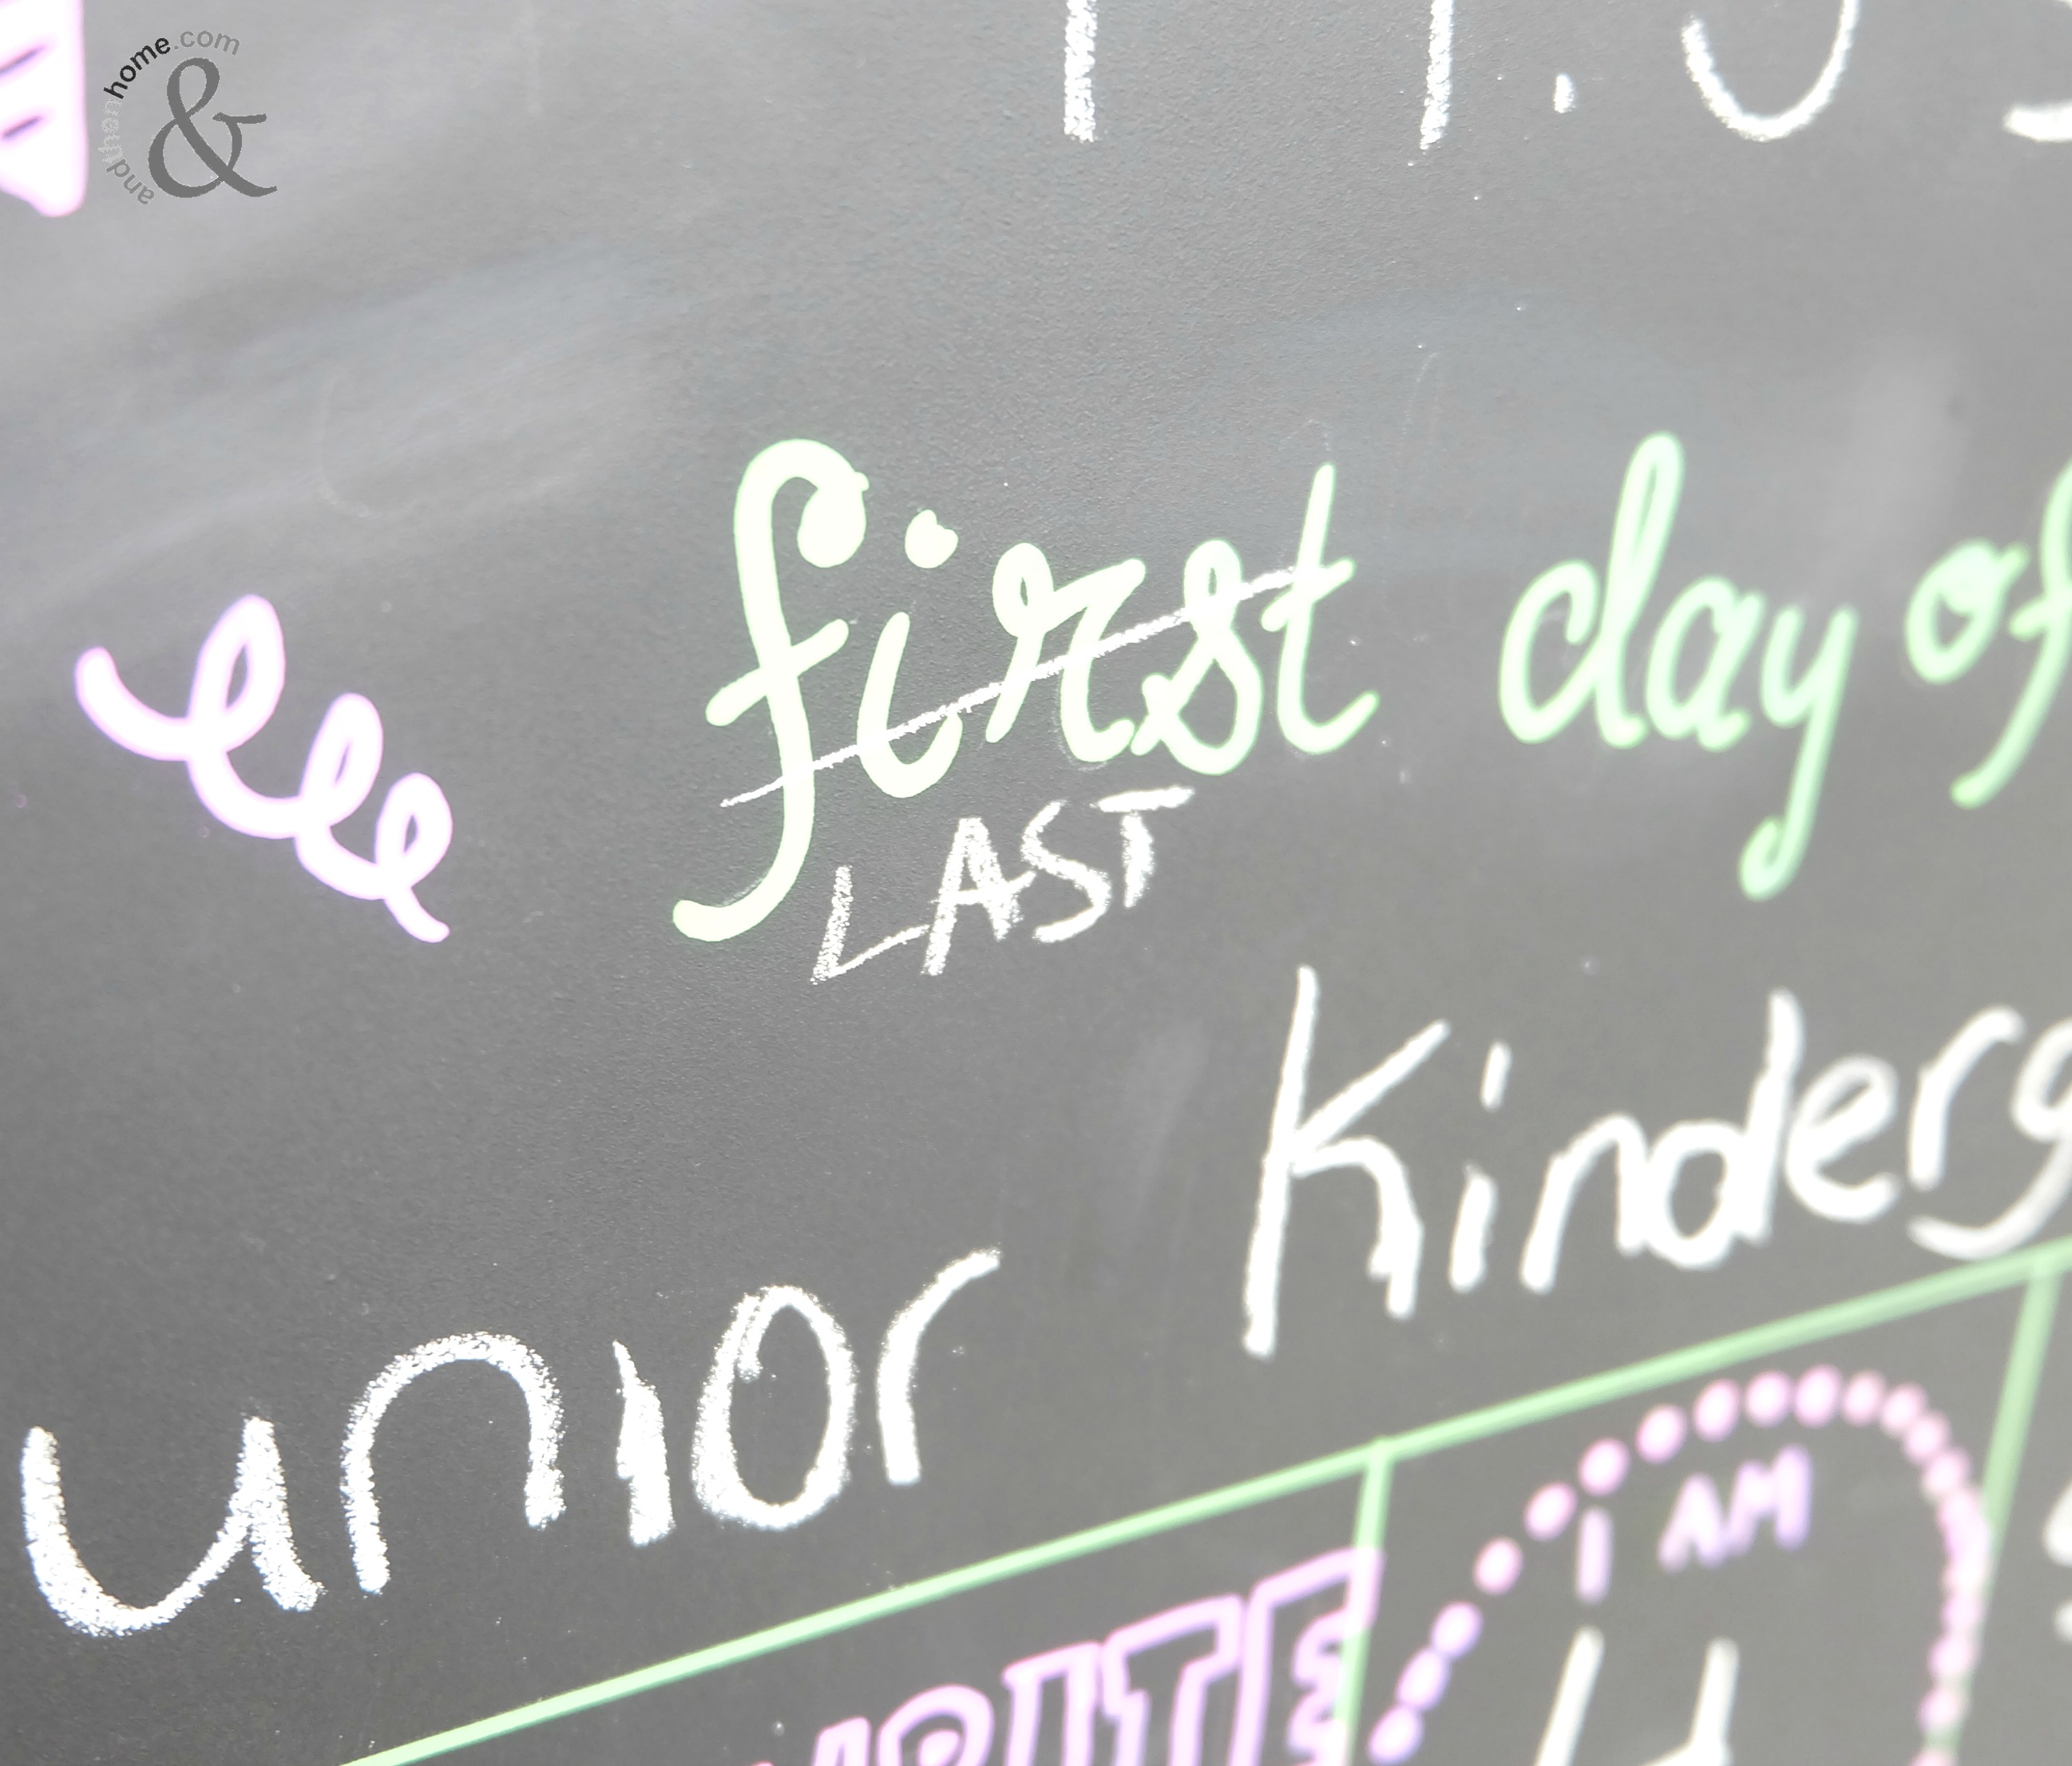 andthenhome.com
&
first day of
LAST
unior Kinderg
I AM